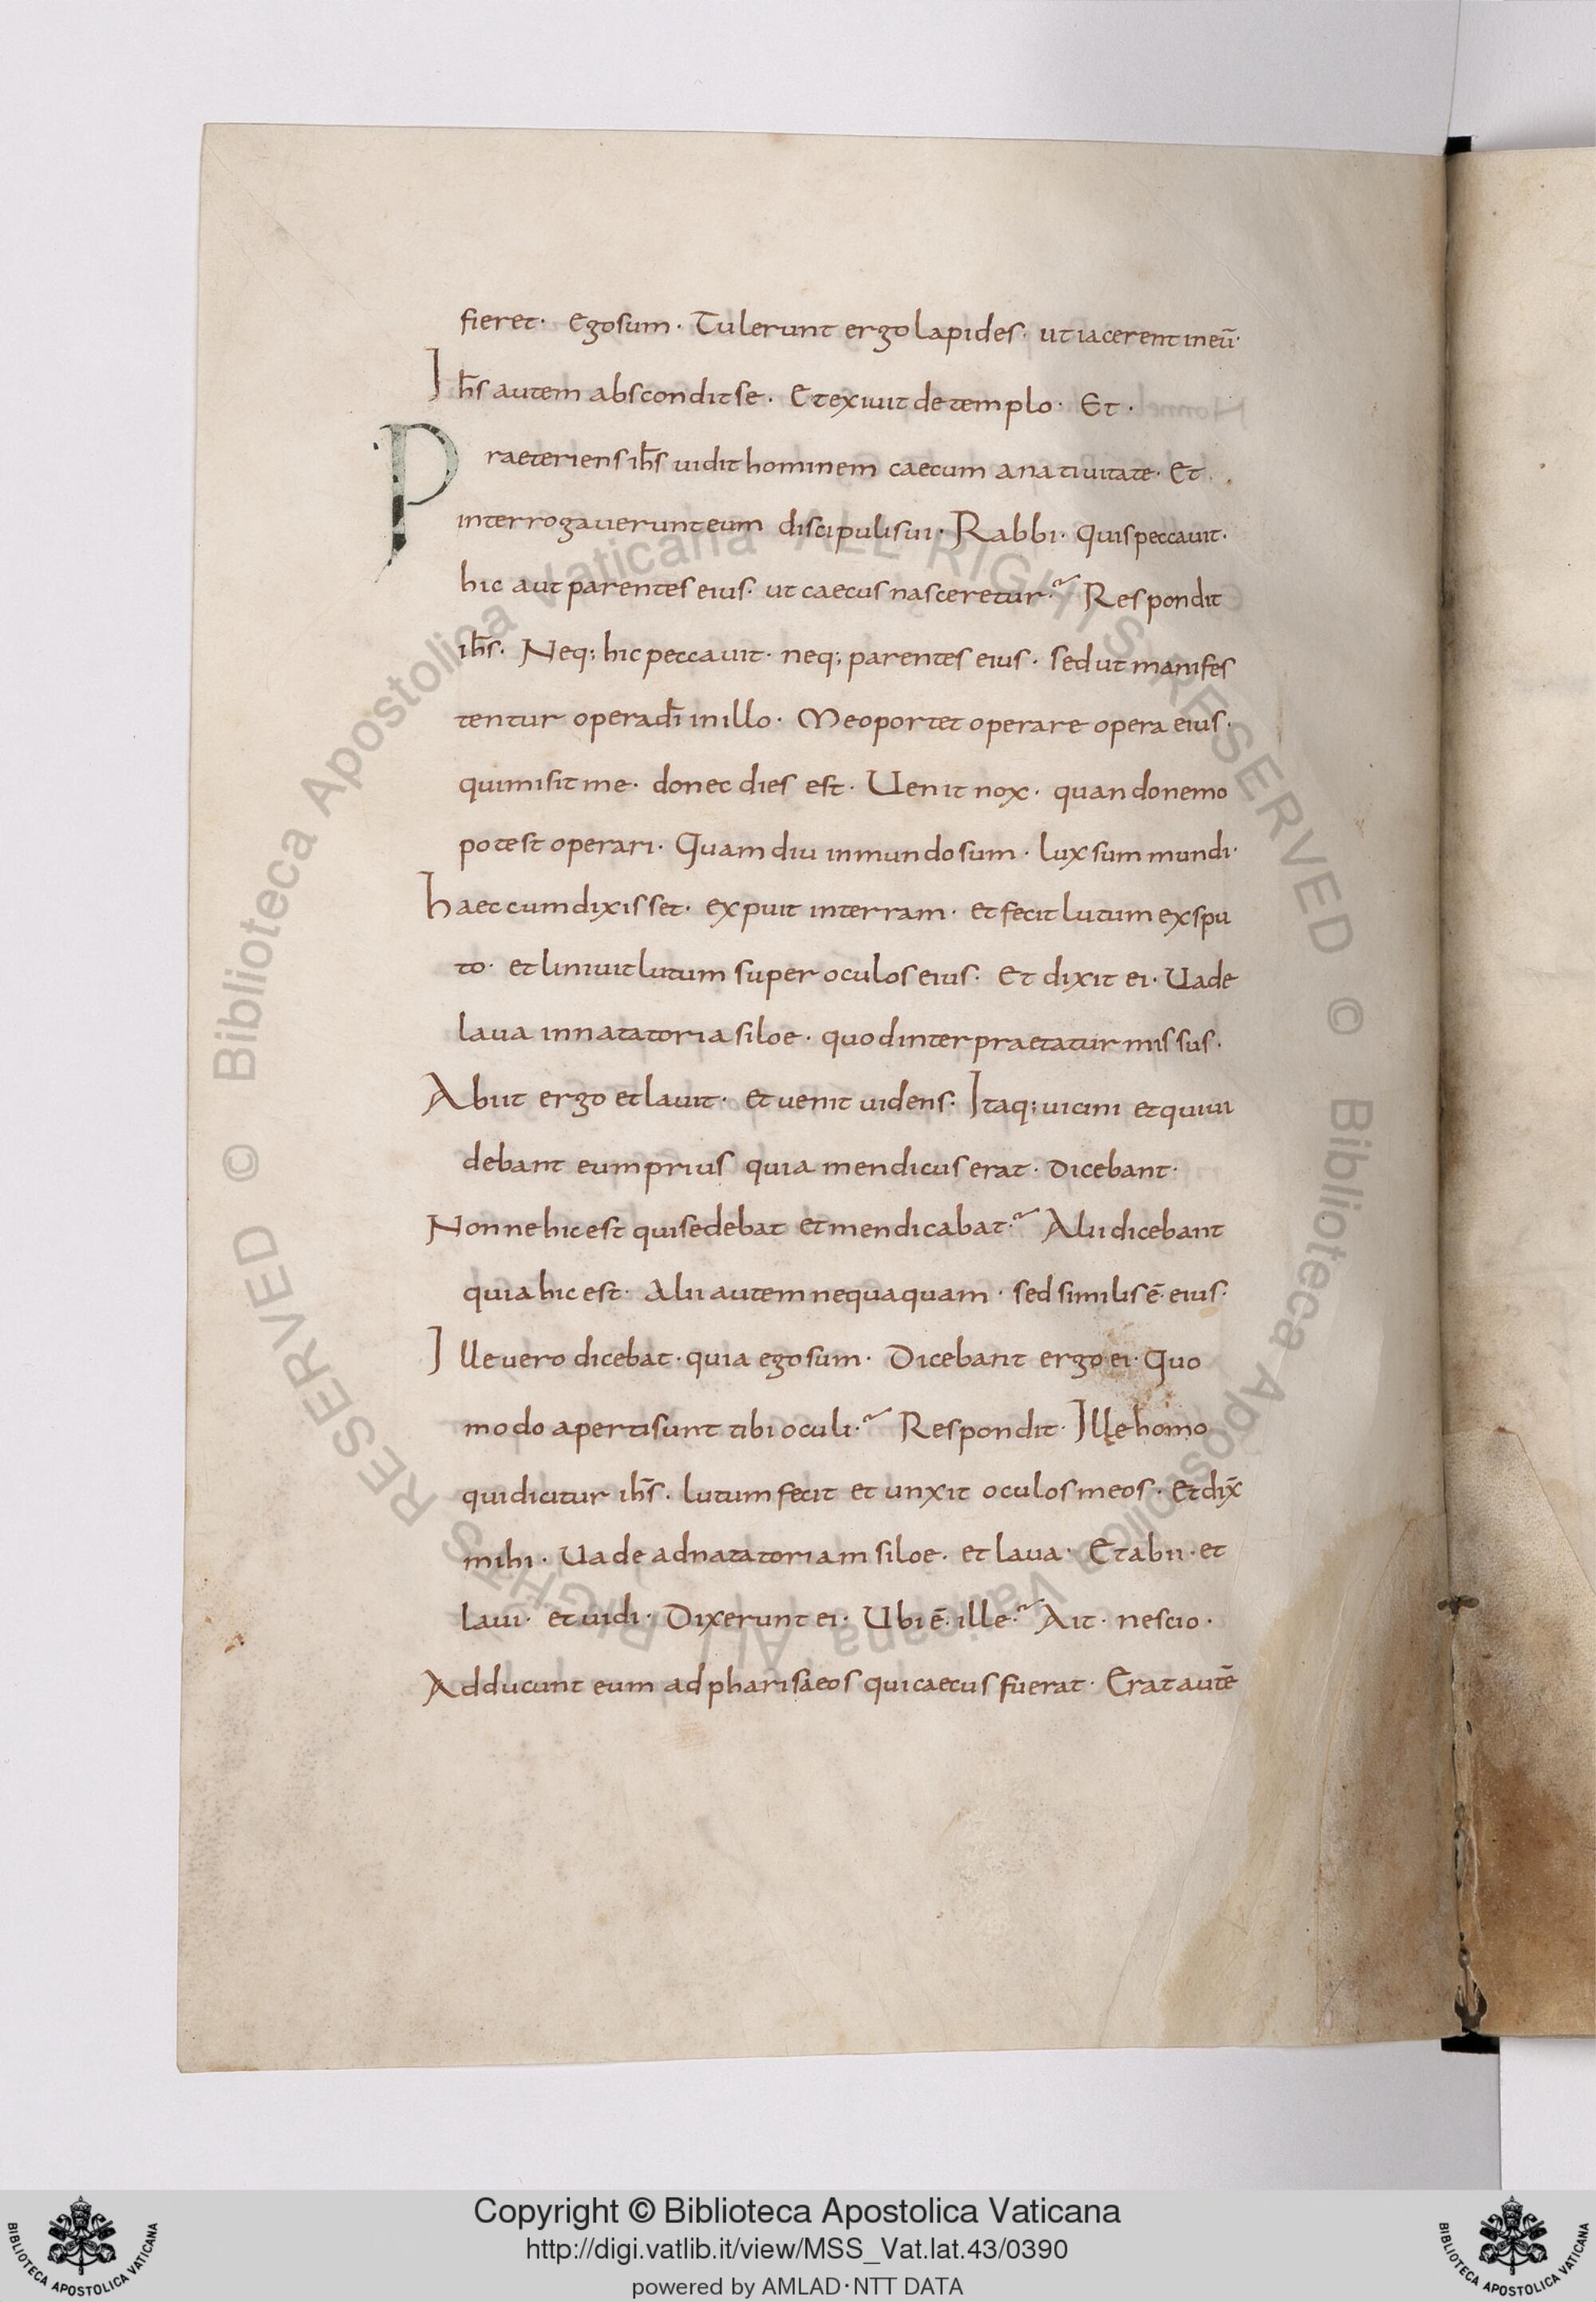 fieret· Egosum· Tulerunt ergo lapides· ut iacerent in eū·
Ihs̄ autem abscondit se· Et exiuit de templo· Et·
Praeteriens ihs̄ uidit hominem caecum a natiuitate· Et·
interrogauerunt eum discipuli sui· Rabbi· quis peccauit·
hic aut parentes eius· ut caecus nasceretur? Respondit
ihs̄· Neq; hic peccauit· neq; parentes eius· sed ut manifes
tentur opera dī in illo· Me oportet operare opera eius·
qui misit me· donec dies est· Uenit nox· quando nemo
potest operari· Quam diu in mundo sum· lux sum mundi·
haec cum dixisset· expuit in terram· et fecit lutum ex spu
to· et liniuit lutum super oculos eius· Et dixit ei· Uade
laua in natatoria siloe· quod interpraetatur missus·
Abiit ergo et lauit· et uenit uidens· Itaq; uicini et qui ui
debant eum prius quia mendicus erat· dicebant·
Nonne hic est qui sedebat et mendicabat? Alii dicebant
quia hic est· Alii autem nequaquam· sed similis ē eius·
Ille uero dicebat· quia ego sum· Dicebant ergo ei· Quo
modo aperti sunt tibi oculi? Respondit· Ille homo
qui dicitur ihs̄· lutum fecit et unxit oculos meos· et dix̄
mihi· Uade ad natatoriam siloe· et laua· Et abii· et
laui· et uidi· Dixerunt ei· Ubi ē ille? Ait· nescio·
Adducunt eum ad pharisaeos qui caecus fuerat· Erat autē
© Biblioteca Apostolica Vaticana ALL RIGHTS RESERVED © Biblioteca Apostolica Vaticana ALL RIGHTS RESERVED
Copyright © Biblioteca Apostolica Vaticana
http://digi.vatlib.it/view/MSS_Vat.lat.43/0390
powered by AMLAD·NTT DATA
BIBLIOTECA APOSTOLICA VATICANA
BIBLIOTECA APOSTOLICA VATICANA